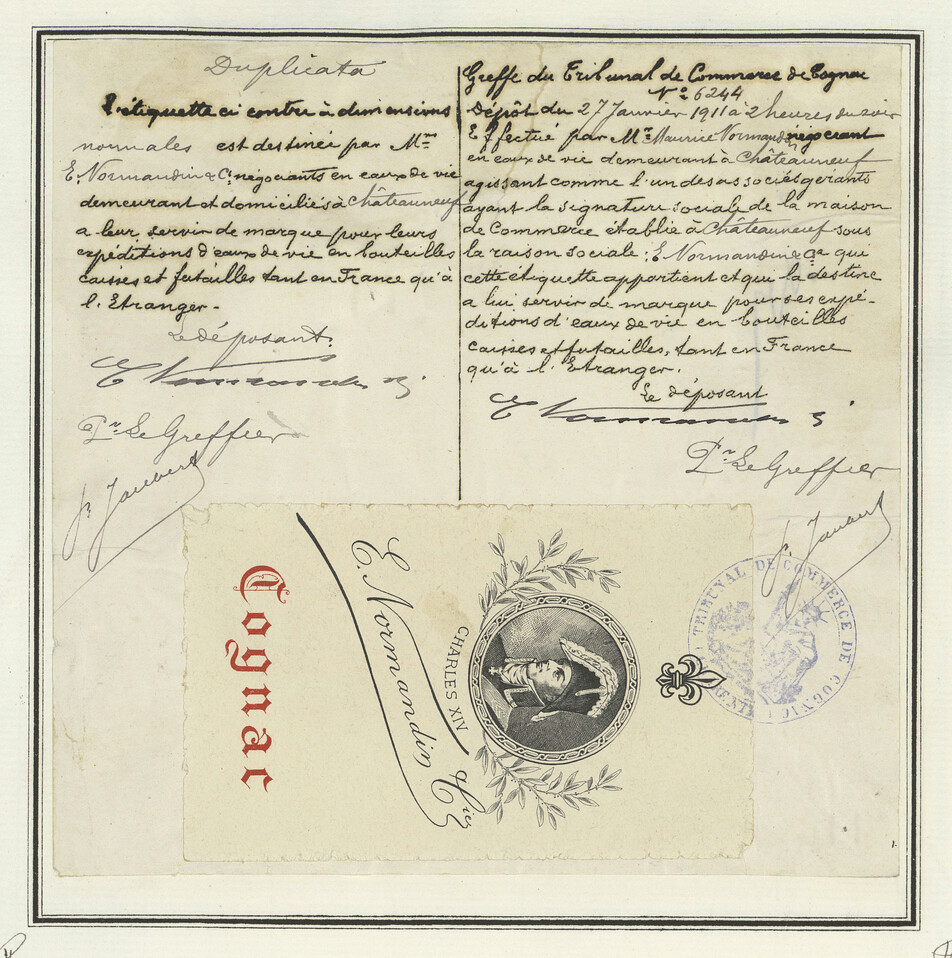 Duplicata
L'étiquette ci contre à dimensions
normales est destinée par Mrs
E. Normandin & Cie négociants en eaux de vie
demeurant et domiciliés à Châteauneuf
a leur servir de marque pour leurs
expéditions d'eaux de vie en bouteilles
caisses et futailles tant en France qu'à
l'Etranger.
Le déposant.
E Normandin
Pr Le Greffier
Greffe du Tribunal de Commerce de Cognac
No 6244
Dépôt du 27 Janvier 1911 à 2 heures du soir
Effectué par Mr Maurice Normandin négociant
en eaux de vie demeurant à Châteauneuf
agissant comme l'un des associés gérants
ayant la signature sociale de la maison
de Commerce établie à Châteauneuf sous
la raison sociale: E Normandin & Cie qui
cette étiquette appartient et qui la destine
a lui servir de marque pour ses expé-
ditions d'eaux de vie en bouteilles
caisses et futailles, tant en France
qu'à l'Etranger.
Le déposant
E Normandin
Pr Le Greffier
TRIBUNAL DE COMMERCE DE COGNAC
CHARLES XIV
E. Normandin & Cie
Cognac